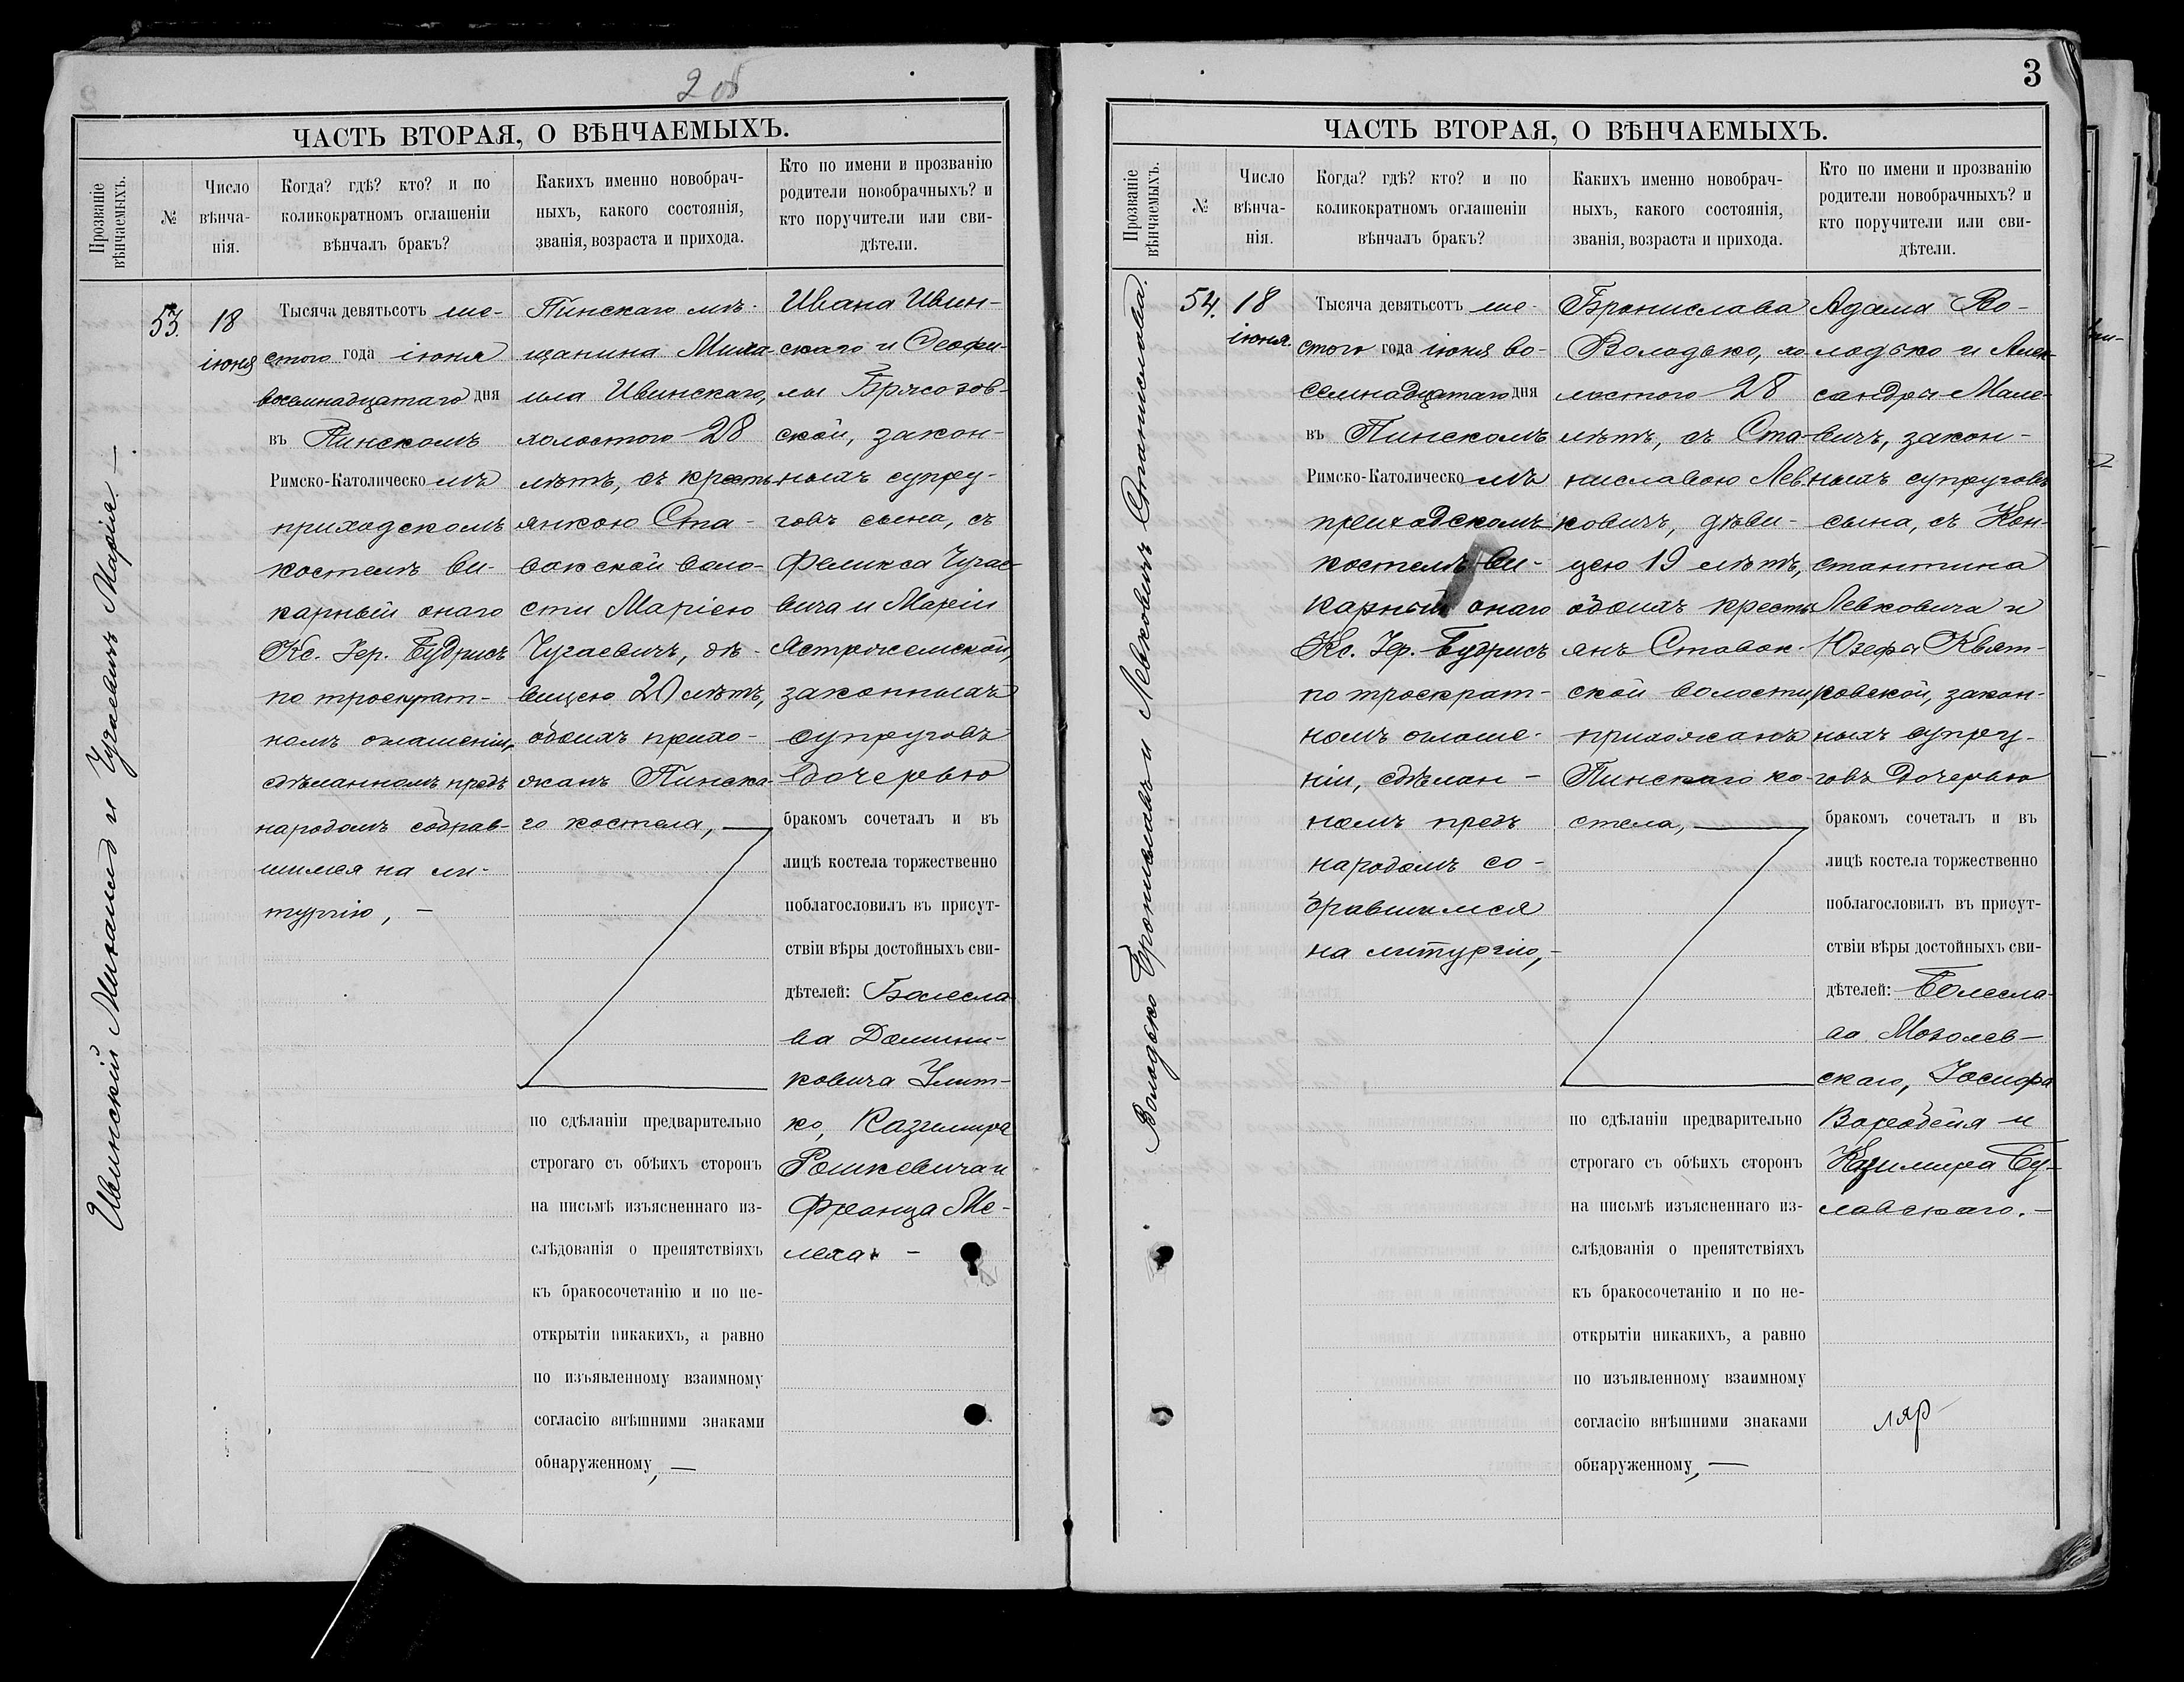 2 об
ЧАСТЬ ВТОРАЯ, О ВѢНЧАЕМЫХЪ.
Прозваніе
вѣнчаемыхъ.
№
Число
вѣнча-
нія.
Когда? гдѣ? кто? и по
коликократномъ оглашеніи
вѣнчалъ бракъ?
Какихъ именно новобрач-
ныхъ, какого состоянія,
званія, возраста и прихода.
Кто по имени и прозванію
родители новобрачныхъ? и
кто поручители или сви-
дѣтели.
Ивинскій Михаилъ и Чугаевичъ Марія. —
53.
18
іюня
Тысяча девятьсотъ ше-
стого года іюня
восемнадцатаго дня
въ Пинскомъ
Римско-Католическомъ
приходскомъ
костелѣ ви-
карный онаго
Кс. Іер. Будрисъ
по троекрат-
номъ оглашеніи,
сдѣланномъ предъ
народомъ собрав-
шимся на ли-
тургію, —
Пинскаго мѣ-
щанина Миха-
ила Ивинскаго,
холостого 28
лѣтъ, съ кресть-
янкою Ста-
вокской воло-
сти Маріею
Чугаевичъ, дѣ-
вицею 20 лѣтъ,
обоихъ прихо-
жанъ Пинска-
го костела, —
по сдѣланіи предварительно
строгаго съ обѣихъ сторонъ
на письмѣ изъясненнаго из-
слѣдованія о препятствіяхъ
къ бракосочетанію и по не-
открытіи никакихъ, а равно
по изъявленному взаимному
согласію внѣшними знаками
обнаруженному, —
Ивана Ивин-
скаго и Ѳеофи-
лы Бржозов-
ской, закон-
ныхъ супру-
говъ сына, съ
Феликса Чугае-
вича и Маріи
Астрожемской,
законныхъ
супруговъ
дочерью
бракомъ сочеталъ и въ
лицѣ костела торжественно
поблагословилъ въ присут-
ствіи вѣры достойныхъ сви-
дѣтелей: Болесла-
ва Домини-
ковича Улит-
ко, Казимира
Рошкевича и
Франца Ме-
леха. —
3
ЧАСТЬ ВТОРАЯ, О ВѢНЧАЕМЫХЪ.
Прозваніе
вѣнчаемыхъ.
№
Число
вѣнча-
нія.
Когда? гдѣ? кто? и по
коликократномъ оглашеніи
вѣнчалъ бракъ?
Какихъ именно новобрач-
ныхъ, какого состоянія,
званія, возраста и прихода.
Кто по имени и прозванію
родители новобрачныхъ? и
кто поручители или сви-
дѣтели.
Володько Брониславъ и Левковичъ Станислава.
54.
18
іюня.
Тысяча девятьсотъ ше-
стого года іюня во-
семнадцатаго дня
въ Пинскомъ
Римско-Католическомъ
приходскомъ
костелѣ ви-
карный онаго
Кс. Іер. Будрисъ
по троекрат-
номъ оглаше-
ніи, сдѣлан-
номъ предъ
народомъ со-
бравшимся
на литургію, —
Бронислава
Володько, хо-
лостого 28
лѣтъ, съ Ста-
ниславою Лев-
ковичъ, дѣви-
цею 19 лѣтъ,
обоихъ кресть-
янъ Ставок-
ской волости,
прихожанъ
Пинскаго ко-
стела, —
по сдѣланіи предварительно
строгаго съ обѣихъ сторонъ
на письмѣ изъясненнаго из-
слѣдованія о препятствіяхъ
къ бракосочетанію и по не-
открытіи никакихъ, а равно
по изъявленному взаимному
согласію внѣшними знаками
обнаруженному, —
Адама Во-
лодько и Алек-
сандры Маце-
вичъ, закон-
ныхъ супруговъ
сына, съ Кон-
стантина
Левковича и
Юзефы Квят-
ковской, закон-
ныхъ супру-
говъ дочерью
бракомъ сочеталъ и въ
лицѣ костела торжественно
поблагословилъ въ присут-
ствіи вѣры достойныхъ сви-
дѣтелей: Болесла-
ва Мозолев-
скаго, Іосифа
Воробейя и
Казимира Бу-
лавскаго. —